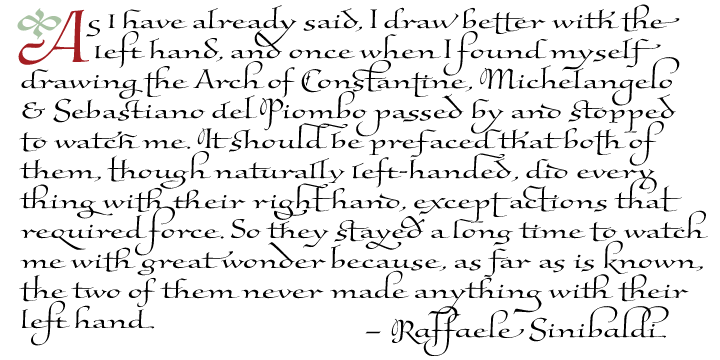 As I have already said, I draw better with the
left hand, and once when I found myself
drawing the Arch of Constantine, Michelangelo
& Sebastiano del Piombo passed by and stopped
to watch me. It should be prefaced that both of
them, though naturally left-handed, did every
thing with their right hand, except actions that
required force. So they stayed a long time to watch
me with great wonder because, as far as is known,
the two of them never made anything with their
left hand.
– Raffaele Sinibaldi